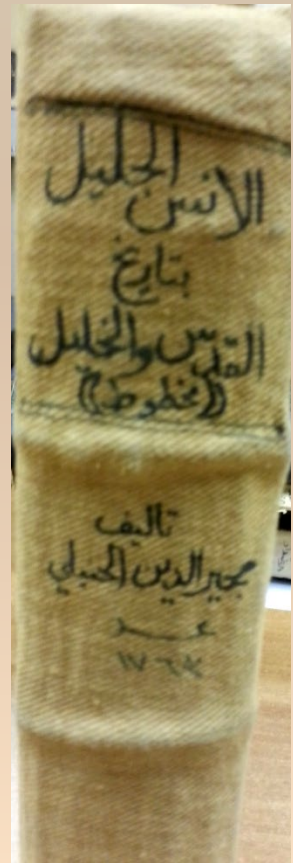 الأنس الجليل
بتاريخ
القدس والخليل
((مخطوط))
تاليف
مجير الدين الحنبلي